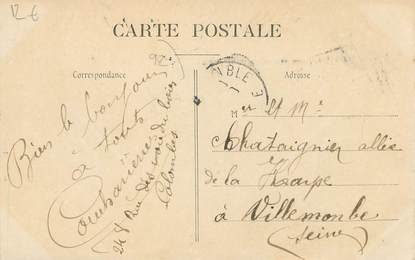 12 €
CARTE POSTALE
Correspondance
Adresse
92
Bien le bonjour
à tous
248 Rue des
Colombes
IBLE
Mr et Me
Chataignier allée
de la Harpe
à Villemonble
(Seine)